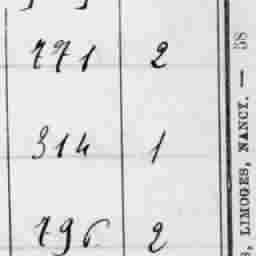 771 2
314 1
796 2
S, LIMOGES, NANCY. — 58